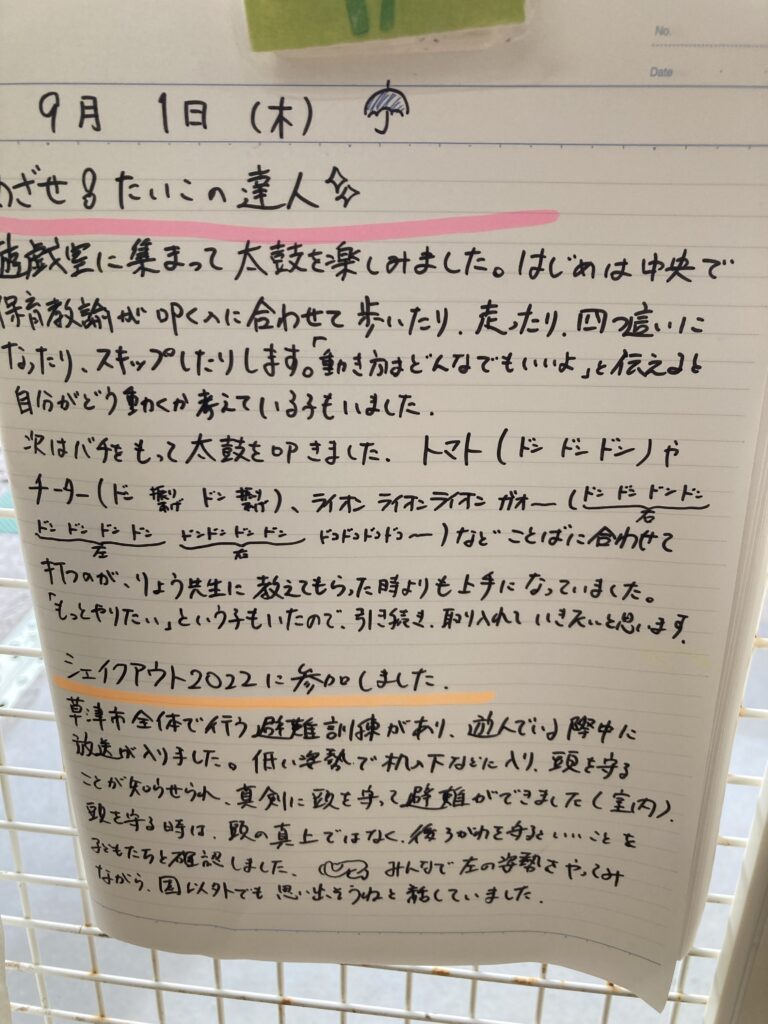 No.
Date
9月 1日 (木)
めざせ!たいこの達人
遊戯室に集まって太鼓を楽しみました。はじめは中央で
保育教諭が叩くのに合わせて歩いたり、走ったり、四つ這いに
なったり、スキップしたりします。「動き方はどんなでもいいよ」と伝えると
自分がどう動くか考えている子もいました.
次はバチをもって太鼓を叩きました. トマト(ドン ドン ドン)や
チーター(ドン ドン)、ライオン ライオン ライオン ガオー(ドン ドン ドン ドン
右
ドン ドン ドン ドン ドン ドン ドン ドン ドコドコドコドコ〜)など ことばに合わせて
左 右
打つのが、りょう先生に教えてもらった時よりも上手になっていました。
「もっとやりたい」という子もいたので、引き続き、取り入れていきたいと思います.
シェイクアウト2022に参加しました.
草津市全体で行う避難訓練があり、遊んでいる際中に
放送が入りました。低い姿勢で机の下などに入り、頭を守る
ことが知らせられ、真剣に頭を守って避難ができました(室内).
頭を守る時は、頭の真上ではなく、後ろがわを守るといいことを
子どもたちと確認しました. みんなで左の姿勢をやってみ
ながら、園以外でも思い出そうねと話していました.